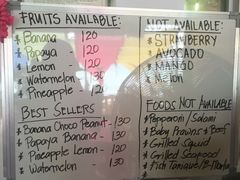 FRUITS AVAILABLE:
* BANANA 120
* PAPAYA - 120
* LEMON - 120
* WATERMELON - 130
* PINEAPPLE - 120
BEST SELLERS
* BANANA CHOCO PEANUT - 130
* PAPAYA BANANA - 130
* PINEAPPLE LEMON - 120
* WATERMELON - 130
NOT AVAILABLE:
* STRAWBERRY
* AVOCADO
* MANGO
* MELON
FOODS NOT AVAILABLE
* PEPPERONI / SALAMI
* BABY PRAWNS & BEEF
* GRILLED SQUID
* GRILLED SEAFOOD
* FISH TANIGUE /